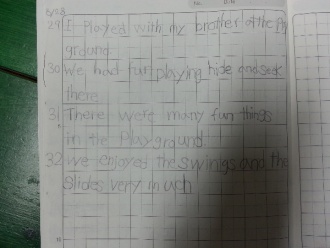 29 I played with my brother at the Play
ground.
30 We had fun playing hide and seek
there.
31 There were many fun things
in the Playground.
32 We enjoyed the swings and the
slides very much